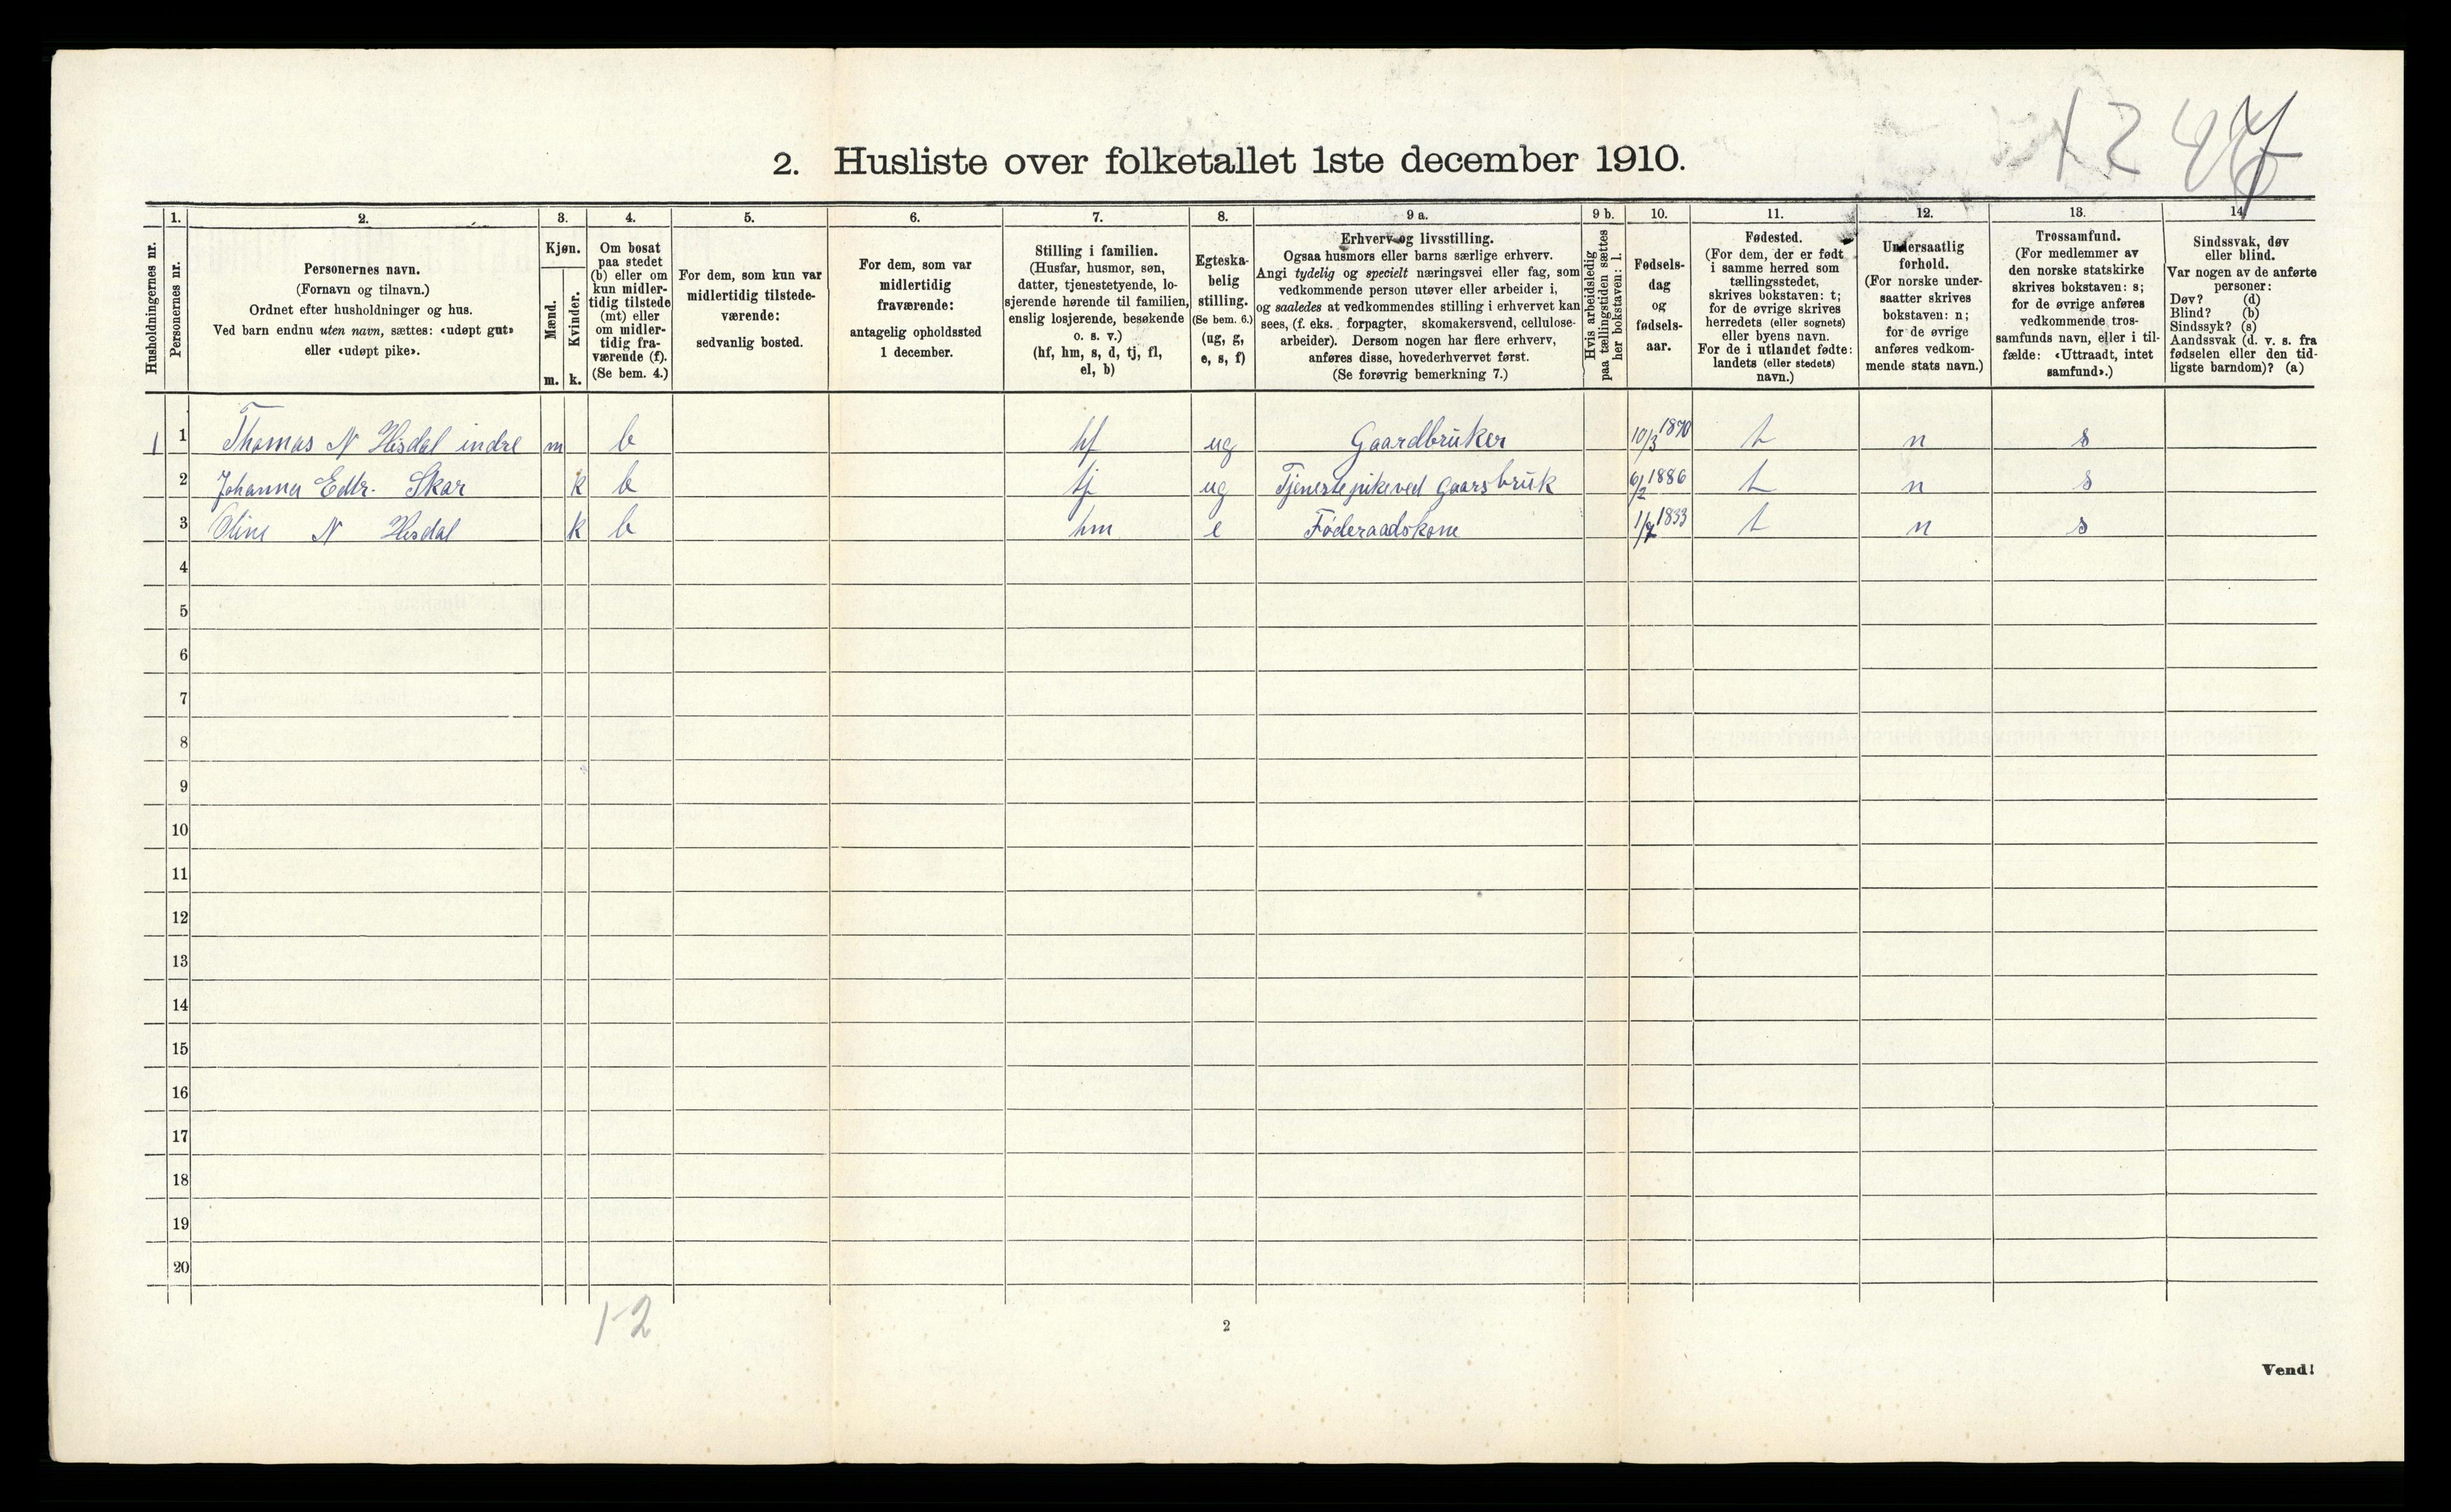 1247
2. Husliste over folketallet 1ste december 1910.
Husholdningernes nr.
1.
Personernes nr.
2.
Personernes navn.
(Fornavn og tilnavn.)
Ordnet efter husholdninger og hus.
Ved barn endnu uten navn, sættes: «udøpt gut»
eller «udøpt pike».
3.
Kjøn.
Mænd.
Kvinder.
m. k.
4.
Om bosat
paa stedet
(b) eller om
kun midler-
tidig tilstede
(mt) eller
om midler-
tidig fra-
værende (f).
(Se bem. 4.)
5.
For dem, som kun var
midlertidig tilstede-
værende:
sedvanlig bosted.
6.
For dem, som var
midlertidig
fraværende:
antagelig opholdssted
1 december.
7.
Stilling i familien.
(Husfar, husmor, søn,
datter, tjenestetyende, lo-
sjerende hørende til familien,
enslig losjerende, besøkende
o. s. v.)
(hf, hm, s, d, tj, fl,
el, b)
8.
Egteska-
belig
stilling.
(Se bem. 6.)
(ug, g,
e, s, f)
9 a.
Erhverv og livsstilling.
Ogsaa husmors eller barns særlige erhverv.
Angi tydelig og specielt næringsvei eller fag, som
vedkommende person utøver eller arbeider i,
og saaledes at vedkommendes stilling i erhvervet kan
sees, (f. eks. forpagter, skomakersvend, cellulose-
arbeider). Dersom nogen har flere erhverv,
anføres disse, hovederhvervet først.
(Se forøvrig bemerkning 7.)
9 b.
Hvis arbeidsledig
paa tællingstiden sættes
her bokstaven: l.
10.
Fødsels-
dag
og
fødsels-
aar.
11.
Fødested.
(For dem, der er født
i samme herred som
tællingsstedet,
skrives bokstaven: t;
for de øvrige skrives
herredets (eller sognets)
eller byens navn.
For de i utlandet fødte:
landets (eller stedets)
navn.)
12.
Undersaatlig
forhold.
(For norske under-
saatter skrives
bokstaven: n;
for de øvrige
anføres vedkom-
mende stats navn.)
13.
Trossamfund.
(For medlemmer av
den norske statskirke
skrives bokstaven: s;
for de øvrige anføres
vedkommende tros-
samfunds navn, eller i til-
fælde: «Uttraadt, intet
samfund».)
14.
Sindssvak, døv
eller blind.
Var nogen av de anførte
personer:
Døv? (d)
Blind? (b)
Sindssyk? (s)
Aandssvak (d. v. s. fra
fødselen eller den tid-
ligste barndom)? (a)
1 1 Thomas N Hisdal indre m b hf ug Gaardbruker 10/3 1870 t n s
2 Johanna Edtr. Skar k b tj ug Tjenestepike ved Gaarsbruk 6/2 1886 t n s
3 Oline N Hisdal k b hm e Føderaadskone 1/7 1833 t n s
4
5
6
7
8
9
10
11
12
13
14
15
16
17
18
19
20
1-2
2
Vend!